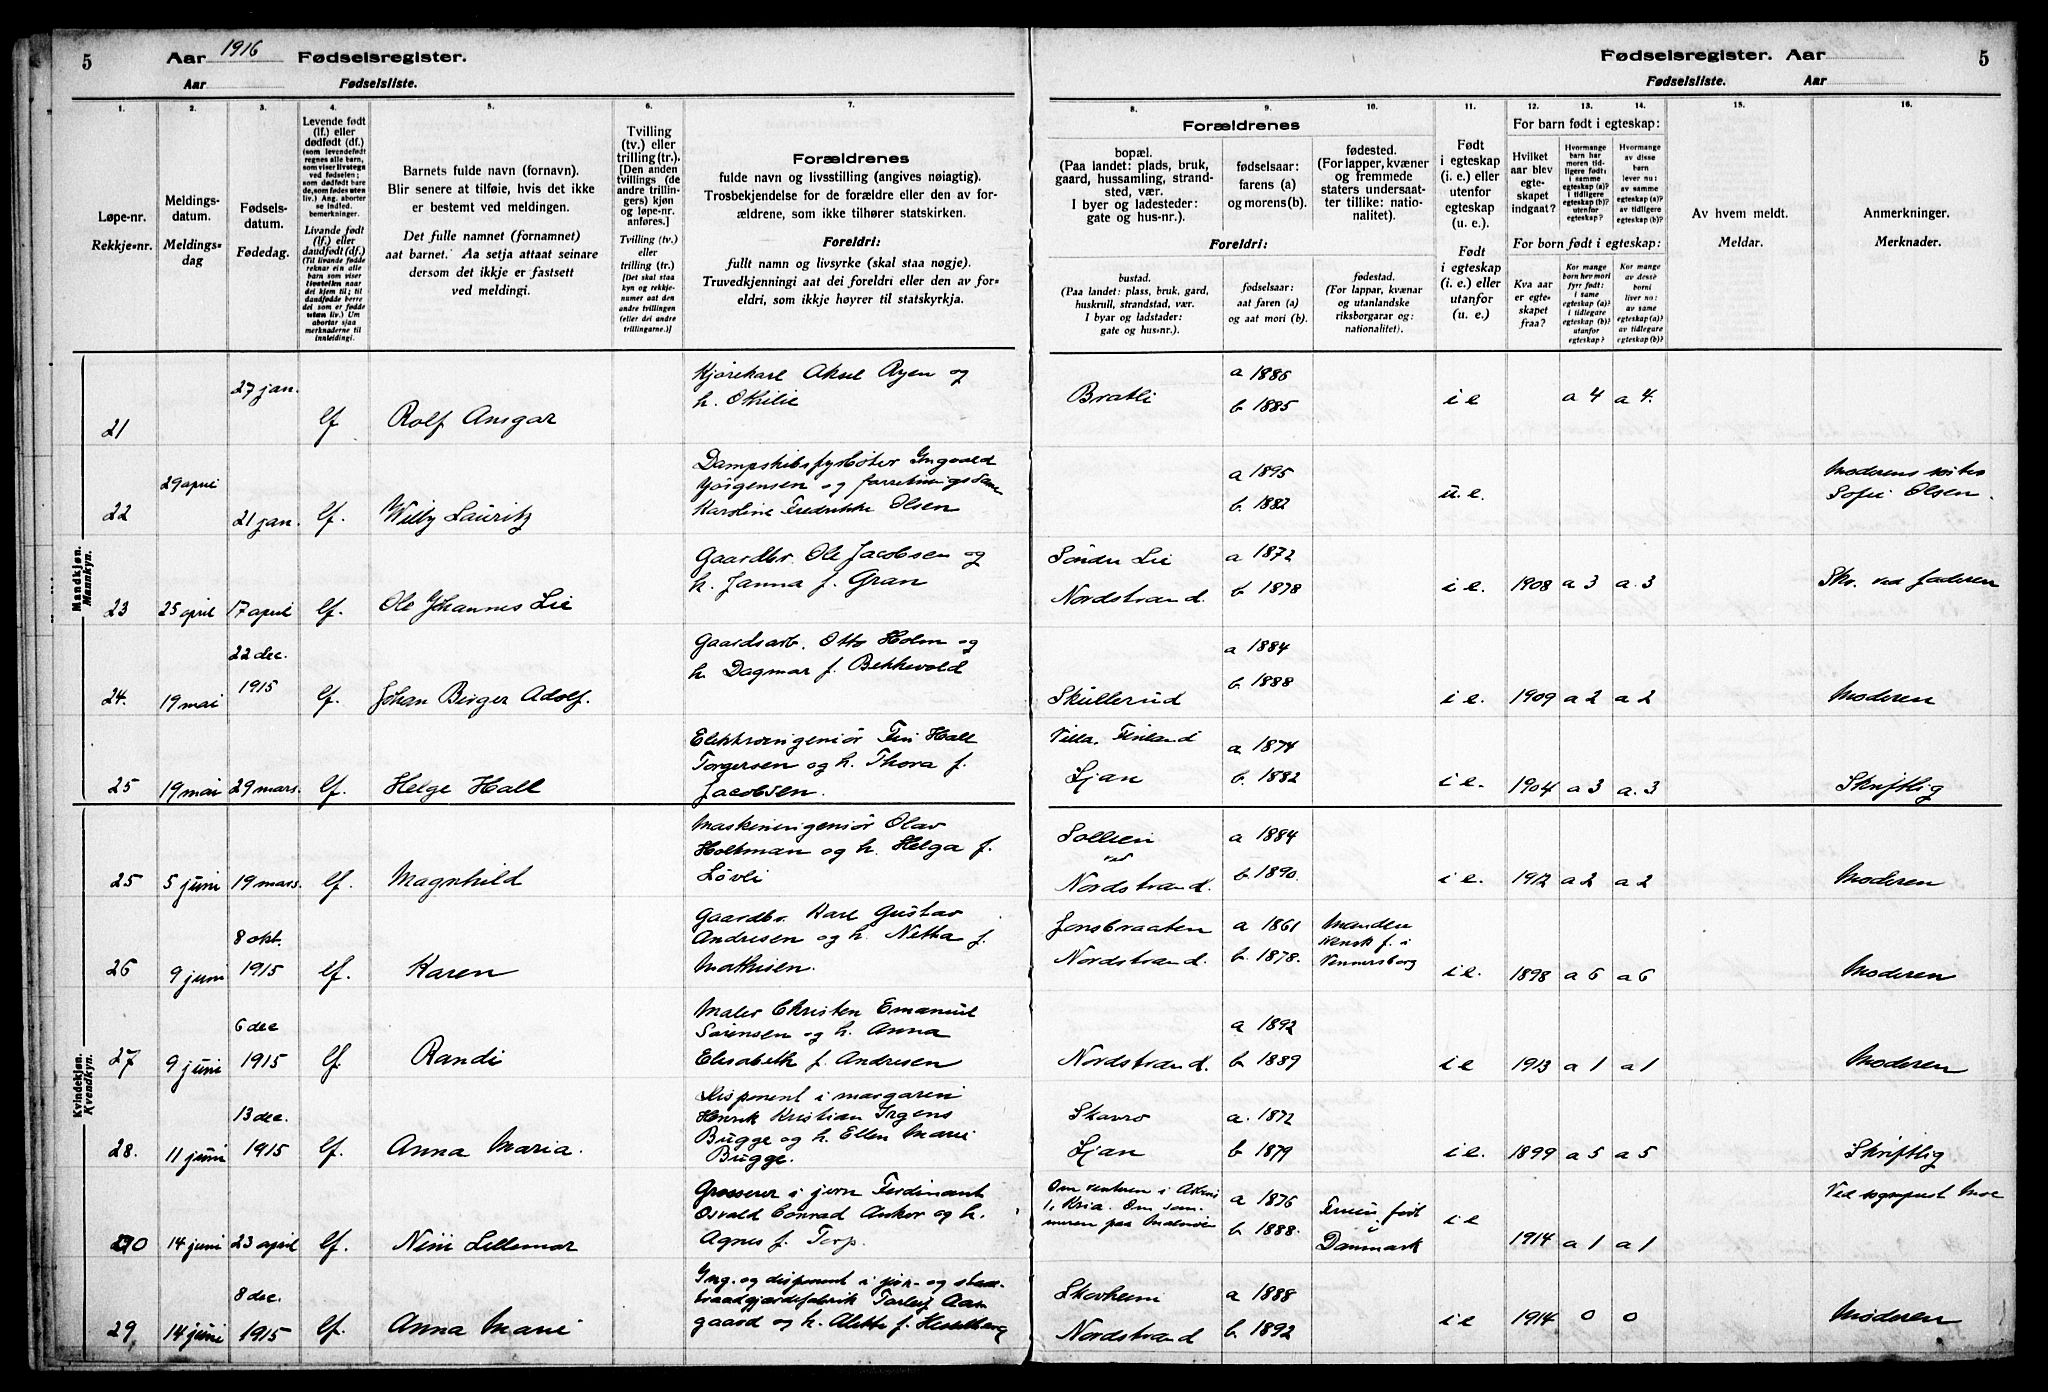 5
Aar 1916 Fødselsregister.
Aar Fødselsliste.
Fødselsregister. Aar
5
Fødselsliste. Aar
1. 2. 3. 4. 5. 6. 7. 8. 9. 10. 11. 12. 13. 14. 15. 16.
Løpe-nr.
Rekkje-nr.
Meldings-
datum.
Meldings-
dag
Fødsels-
datum.
Fødedag.
Levende født
(lf.) eller
dødfødt (df.)
Livande født
(lf.) eller
daudfødt (df.)
Barnets fulde navn (fornavn).
Blir senere at tilføie, hvis det ikke
er bestemt ved meldingen.
Det fulle namnet (fornamnet)
aat barnet. Aa setja attaat seinare
dersom det ikkje er fastsett
ved meldingi.
Tvilling
(tv.) eller
trilling (tr.)
[Den anden
tvillings (de
andre trillin-
gers) kjøn
og løpe-nr.
anføres.]
Tvilling (tv.)
eller
trilling (tr.)
[Det skal staa
kyn og rekkje-
numer aat den
andre tvillingen
(eller dei andre
trillingarne.)]
Forældrenes
fulde navn og livsstilling (angives nøiagtig).
Trosbekjendelse for de forældre eller den av for-
ældrene, som ikke tilhører statskirken.
Foreldri:
fullt namn og livsyrke (skal staa nøgje).
Truvedkjenningi aat dei foreldri eller den av for-
eldri, som ikkje høyrer til statskyrkja.
Forældrenes
bopæl.
(Paa landet: plads, bruk,
gaard, hussamling, strand-
sted, vær.
I byer og ladesteder:
gate og hus-nr.).
fødselsaar:
farens (a)
og morens (b).
fødested.
(For lapper, kvæner
og fremmede
staters undersaat-
ter tillike: natio-
nalitet).
Foreldri:
bustad.
(Paa landet: plass, bruk, gard,
huskrull, strandstad, vær.
I byar og ladstader:
gate og hus-nr.).
fødselsaar:
aat faren (a)
og aat mori (b).
fødestad.
(For lappar, kvænar
og utanlandske
riksborgarar og:
nationalitet).
Født
i egteskap
(i. e.) eller
utenfor
egteskap
(u. e.).
Født
i egteskap
(i. e.) eller
utanfor
(u. e.)
For barn født i egteskap:
Hvilket
aar blev
egte-
skapet
indgaat?
For born født i egteskap:
Kva aar
er egte-
skapet
fraa?
Av hvem meldt.
Meldar.
Anmerkninger.
Merknader.
Mandkjøn.
Mannkyn.
21 27 jan. lf Rolf Ansgar
Kjørekarl Aksel Ryen og
h. Othilie
Bratli a 1886 b. 1885 i e a 4 a 4.
22 29 april 21 jan. lf. Willy Lauritz
Dampskibsfyrbøter Yngvald
Jørgensen og
Karoline Fredrikke Olsen
a 1895 b. 1882 u. e.
Moderens søster
Sofie Olsen.
23 25 april 17 april lf. Ole Johannes Lie
Gaardbr. Ole Jacobsen og
h. Janna f. Gran
Søndre Lie
Nordstrand. a 1872 b 1878 i e. 1908 a 3 a. 3 Skr. ved faderen
24. 19 mai 22 dec. 1915 lf. Johan Birger Adolf.
Gaardsarb. Otto Holm og
h. Dagmar f. Bekkevold
Skullerud a 1884 b. 1888 i e. 1909 a 2 a 2 Moderen
25 19 mai 29 mars. lf. Helge Hall
Elektroingeniør Finn Hall
Torgersen og h. Thora f.
Jacobsen.
Villa. Finland
Ljan a. 1874 b. 1882 i e. 1904 a 3 a. 3 Skriftlig
Kvindekjøn.
Kvendkyn.
25 5 juni 19 mars. lf. Magnhild
Maskiningeniør Olav
Holtman og h. Helga f.
Løvli
Solliein
ved
Nordstrand. a 1884 b. 1890. i e. 1912 a 2 a 2 Moderen
26 9 juni 8 okt. 1915 lf. Karen
Gaardbr. Karl Gustav
Andresen og h. Netha f.
Mathisen.
Jonsbraaten
Nordstrand. a 1861 b. 1878.
Manden
svensk f. i
Vennersborg i e. 1898 a 6 a 6 Moderen
27 9 juni 6 dec 1915 lf. Randi
Maler Christen Emanuel
Sørensen og h. Anna
Elisabeth f. Andresen
Nordstrand. a 1892 b. 1889 i e 1913 a 1 a 1 Moderen
28. 11 juni 13 dec. 1915 lf. Anna Maria.
Disponent i margarin
Henrik Kristian Irgens
Bugge og h. Ellen Marie
Bugge.
Skavro
Ljan a. 1872 b 1879 i e. 1899 a 5 a 5 Skriftlig
14 juni 23 april lf. Nini Lillemor
Grosserer i jern Ferdinant
Osvald Conrad Anker og h.
Agnes f. Torp.
Om vinteren i
Kria. Om som-
meren paa Malmøen
a 1876 b 1888.
Fruen født
i
Danmark i e 1914 a 1 a 1
Ved sogneprest Moe
29 14 juni 8 dec. 1915 lf. Anna Marie
Ing. og disponent i jern- og staal-
traadgjærdefabrik Torleif Aam
gaard og h. Alette f. Hesselberg
Skovheim
Nordstrand a 1888 b. 1892 i e 1914 0 0 Moderen